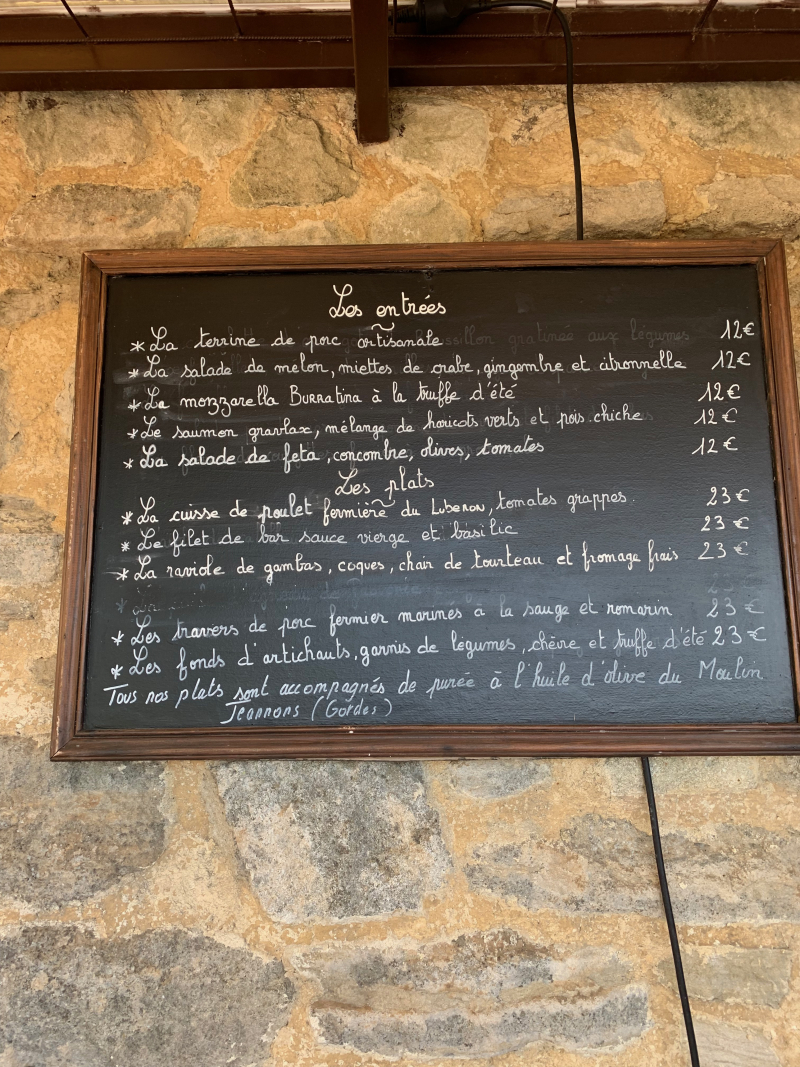 Les entrées
* La terrine de porc artisanale 12€
* La salade de melon, miettes de crabe, gingembre et citronnelle 12€
* La mozzarella BURRATina à la truffe d'été 12€
* Le saumon gravlax, mélange de haricots verts et pois chiche 12€
* La salade de feta, concombre, olives, tomates 12€
Les plats
* La cuisse de poulet fermière du LubeRon, tomates grappes. 23€
* Le filet de bar sauce vierge et basilic 23€
* La raviole de gambas, coques, chair de tourteau et fromage frais 23€
* Les travers de porc fermier marinés à la sauge et romarin 23€
* Les fonds d'artichauts, garnis de légumes, chèvre et truffe d'été 23€
Tous nos plats sont accompagnés de purée à l'huile d'olive du Moulin
Jeannons (Gordes)